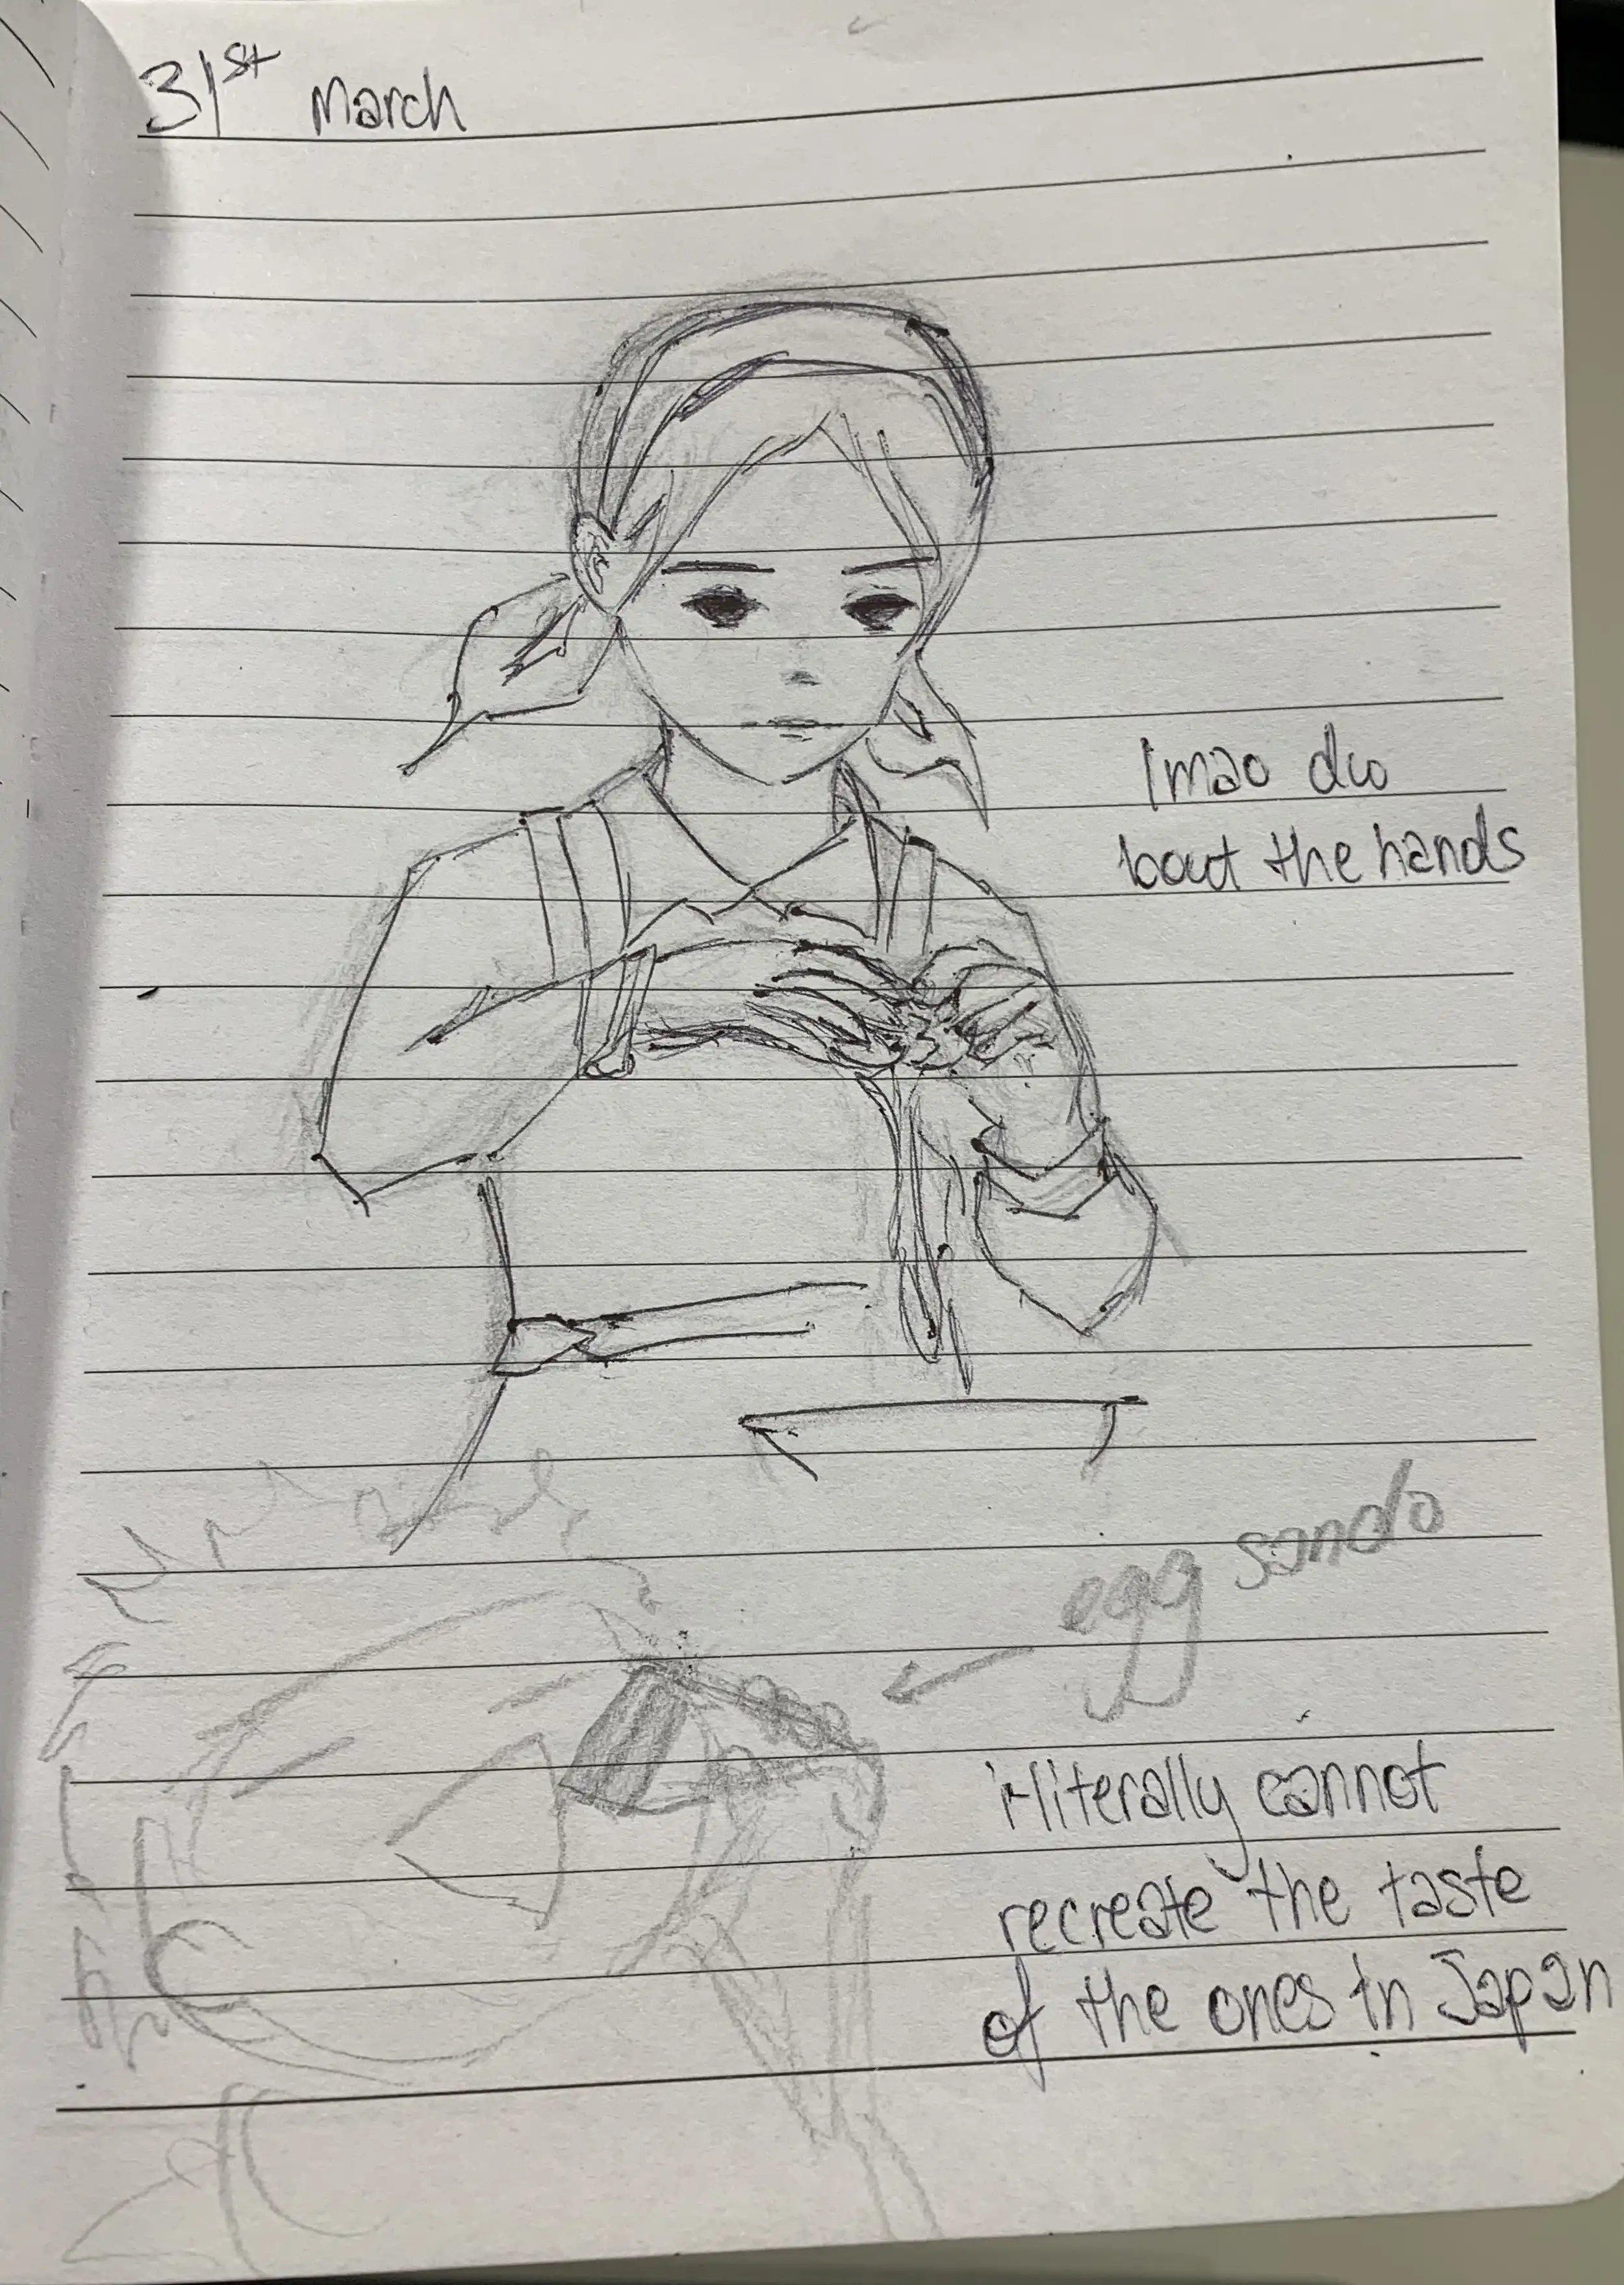 31st March
lmao dw
bout the hands
egg sando
i literally cannot
recreate the taste
of the ones in Japan